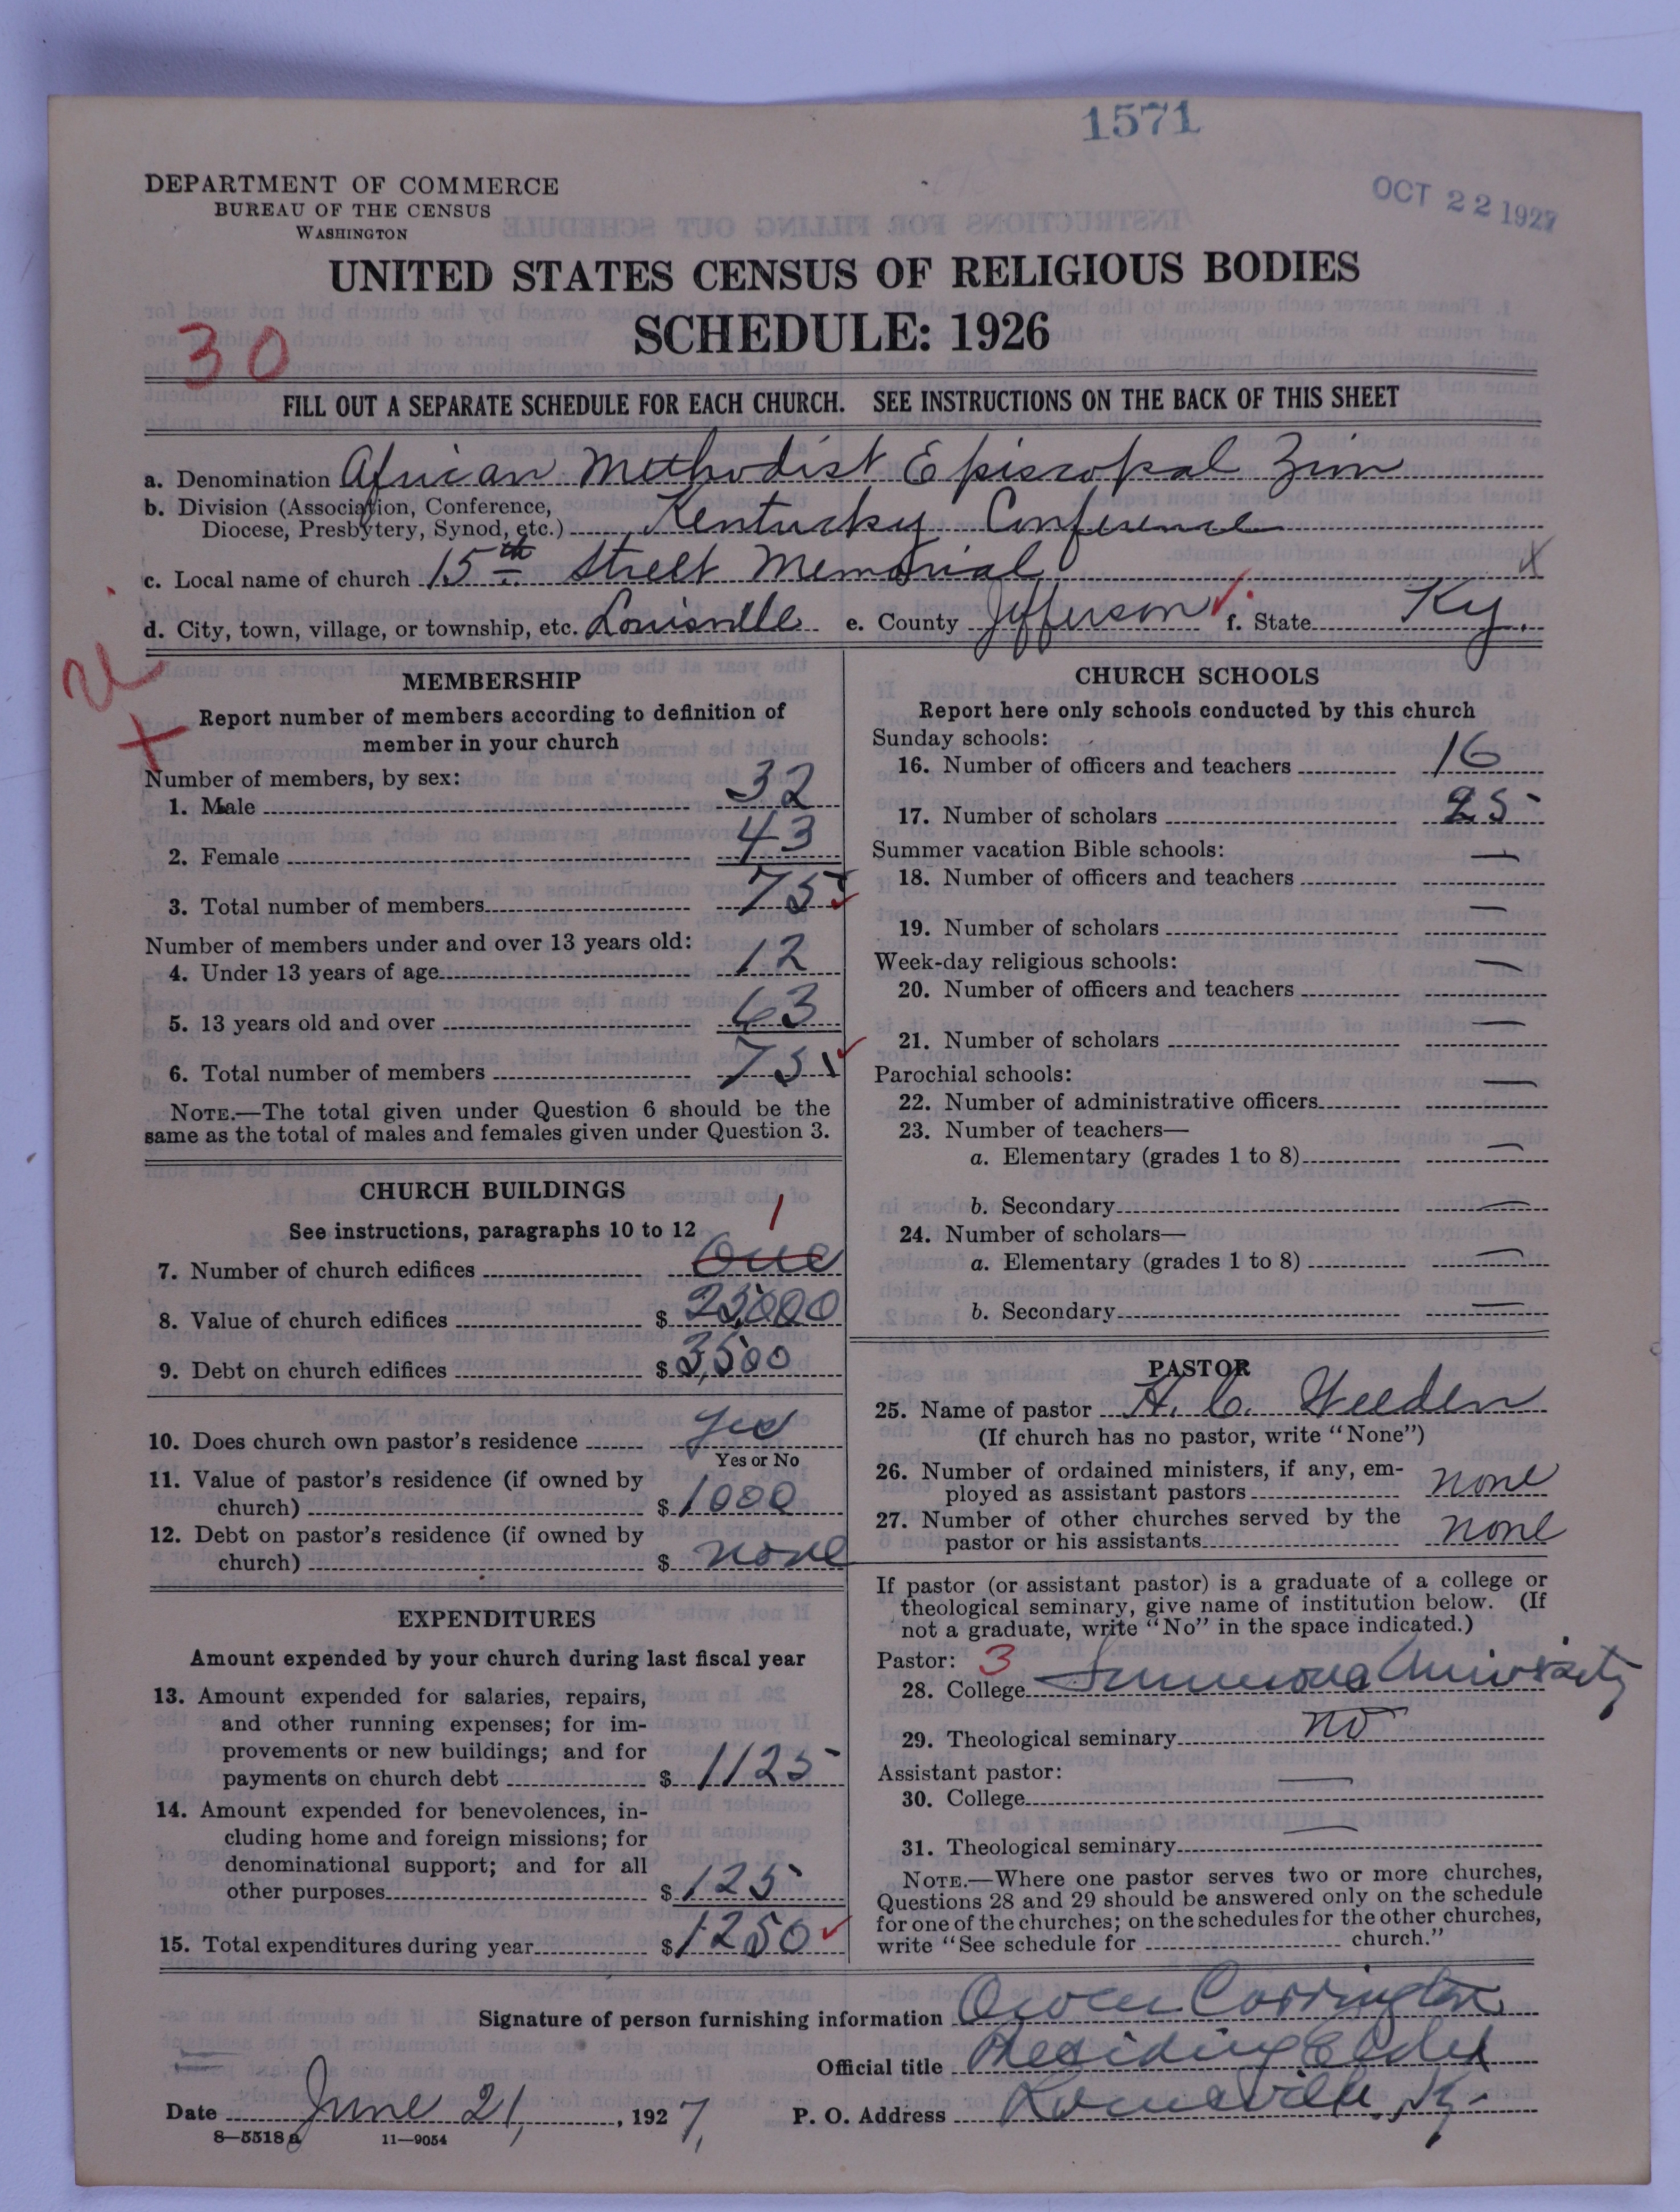 1571
OCT 22 1927
DEPARTMENT OF COMMERCE
BUREAU OF THE CENSUS
WASHINGTON
UNITED STATES CENSUS OF RELIGIOUS BODIES
SCHEDULE: 1926
30
FILL OUT A SEPARATE SCHEDULE FOR EACH CHURCH. SEE INSTRUCTIONS ON THE BACK OF THIS SHEET
a. Denomination African Methodist Episcopal Zion
b. Division (Association, Conference,
Diocese, Presbytery, Synod, etc.) Kentucky Conference
c. Local name of church 15th Street Memorial
d. City, town, village, or township, etc. Louisville e. County Jefferson f. State Ky.
MEMBERSHIP
Report number of members according to definition of
member in your church
Number of members, by sex:
1. Male 32
2. Female 43
3. Total number of members 75
Number of members under and over 13 years old:
4. Under 13 years of age 12
5. 13 years old and over 63
6. Total number of members 75
NOTE.—The total given under Question 6 should be the
same as the total of males and females given under Question 3.
CHURCH BUILDINGS
See instructions, paragraphs 10 to 12 1
7. Number of church edifices One
8. Value of church edifices $ 25,000
9. Debt on church edifices $ 3,500
10. Does church own pastor's residence yes
Yes or No
11. Value of pastor's residence (if owned by
church) $ 1000
12. Debt on pastor's residence (if owned by
church) $ none
EXPENDITURES
Amount expended by your church during last fiscal year
13. Amount expended for salaries, repairs,
and other running expenses; for im-
provements or new buildings; and for
payments on church debt $ 1125
14. Amount expended for benevolences, in-
cluding home and foreign missions; for
denominational support; and for all
other purposes $ 125
15. Total expenditures during year $ 1250
CHURCH SCHOOLS
Report here only schools conducted by this church
Sunday schools:
16. Number of officers and teachers 16
17. Number of scholars 25
Summer vacation Bible schools:
18. Number of officers and teachers —
19. Number of scholars —
Week-day religious schools:
20. Number of officers and teachers —
21. Number of scholars —
Parochial schools:
22. Number of administrative officers —
23. Number of teachers—
a. Elementary (grades 1 to 8) —
b. Secondary —
24. Number of scholars—
a. Elementary (grades 1 to 8) —
b. Secondary —
PASTOR
25. Name of pastor H. C. Weeden
(If church has no pastor, write "None")
26. Number of ordained ministers, if any, em-
ployed as assistant pastors none
27. Number of other churches served by the
pastor or his assistants none
If pastor (or assistant pastor) is a graduate of a college or
theological seminary, give name of institution below. (If
not a graduate, write "No" in the space indicated.)
Pastor: 3
28. College Simmons University
29. Theological seminary no
Assistant pastor:
30. College —
31. Theological seminary —
NOTE.—Where one pastor serves two or more churches,
Questions 28 and 29 should be answered only on the schedule
for one of the churches; on the schedules for the other churches,
write "See schedule for church."
Signature of person furnishing information Owen Carrington
Official title Presiding Elder
Date June 21, 1927, P. O. Address Louisville, Ky.
8—5518 a 11—9054